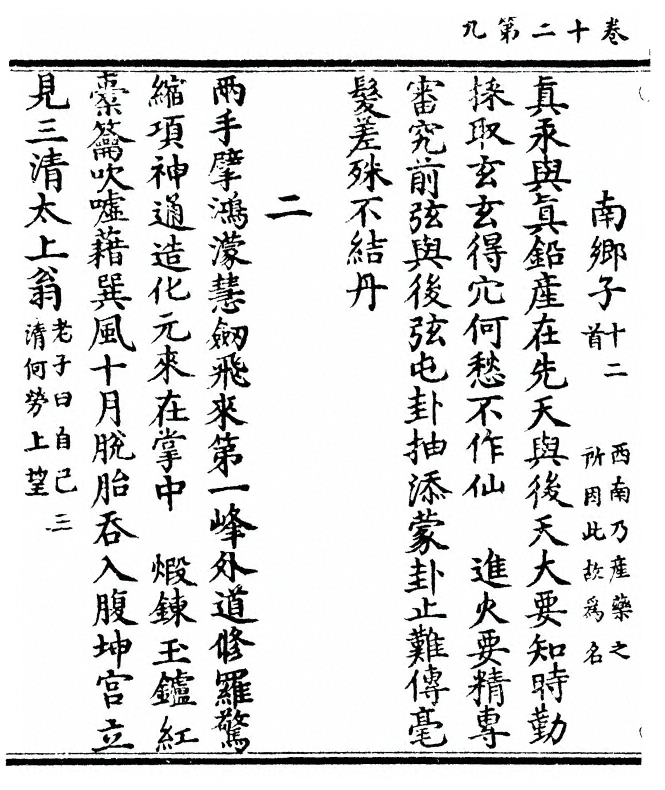 卷十二第九
南鄉子十二首 西南乃產藥之所因此故爲名
真汞與真鉛產在先天與後天大要知時勤
採取玄玄得穴何愁不作仙 進火要精專
審究前弦與後弦屯卦抽添蒙卦止難傳毫
髮差殊不結丹
二
兩手擘鴻濛慧劒飛來第一峰外道修羅驚
縮項神通造化元來在掌中 煅鍊玉鑪紅
橐籥吹噓藉巽風十月脫胎吞入腹坤宮立
見三清太上翁老子曰自己三清何勞上望